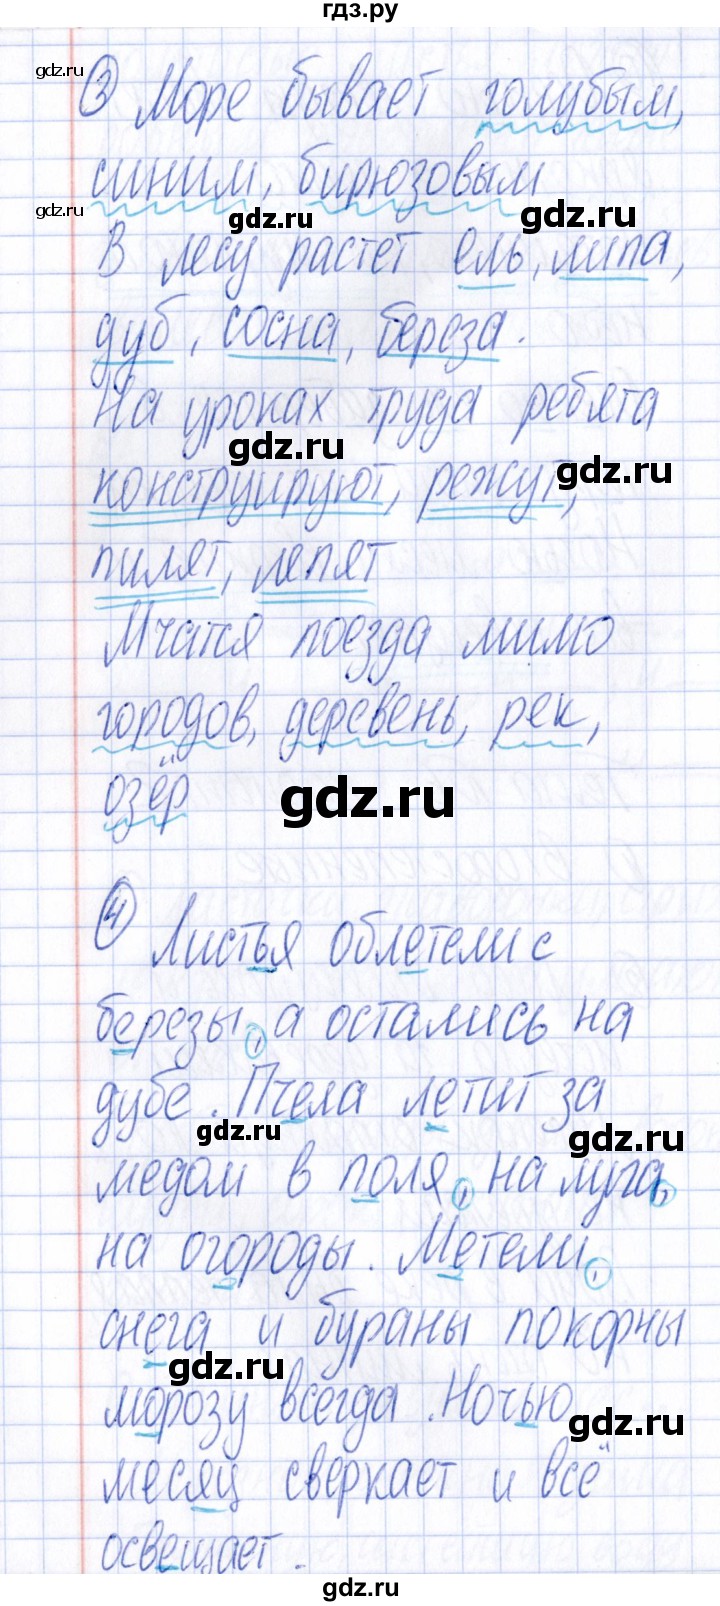 гдз.ру
gdz.ru
③ Море бывает голубым,
синим, бирюзовым
gdz.ru
gdz.ru
gdz.ru
В лесу растет ель, липа,
дуб, сосна, береза.
На уроках труда ребята
gdz.ru
gdz.ru
конструируют, режут,
пилят, лепят
Мчатся поезда мимо
городов, деревень, рек,
озёр
gdz.ru
④ Листья облетели с
березы, а остались на
дубе. Пчела летит за
gdz.ru
gdz.ru
медом в поля, на луга,
на огороды. Метели,
снега и бураны покорны
gdz.ru
морозу всегда. Ночью
gdz.ru
месяц сверкает и всё
освещает.
gdz.ru